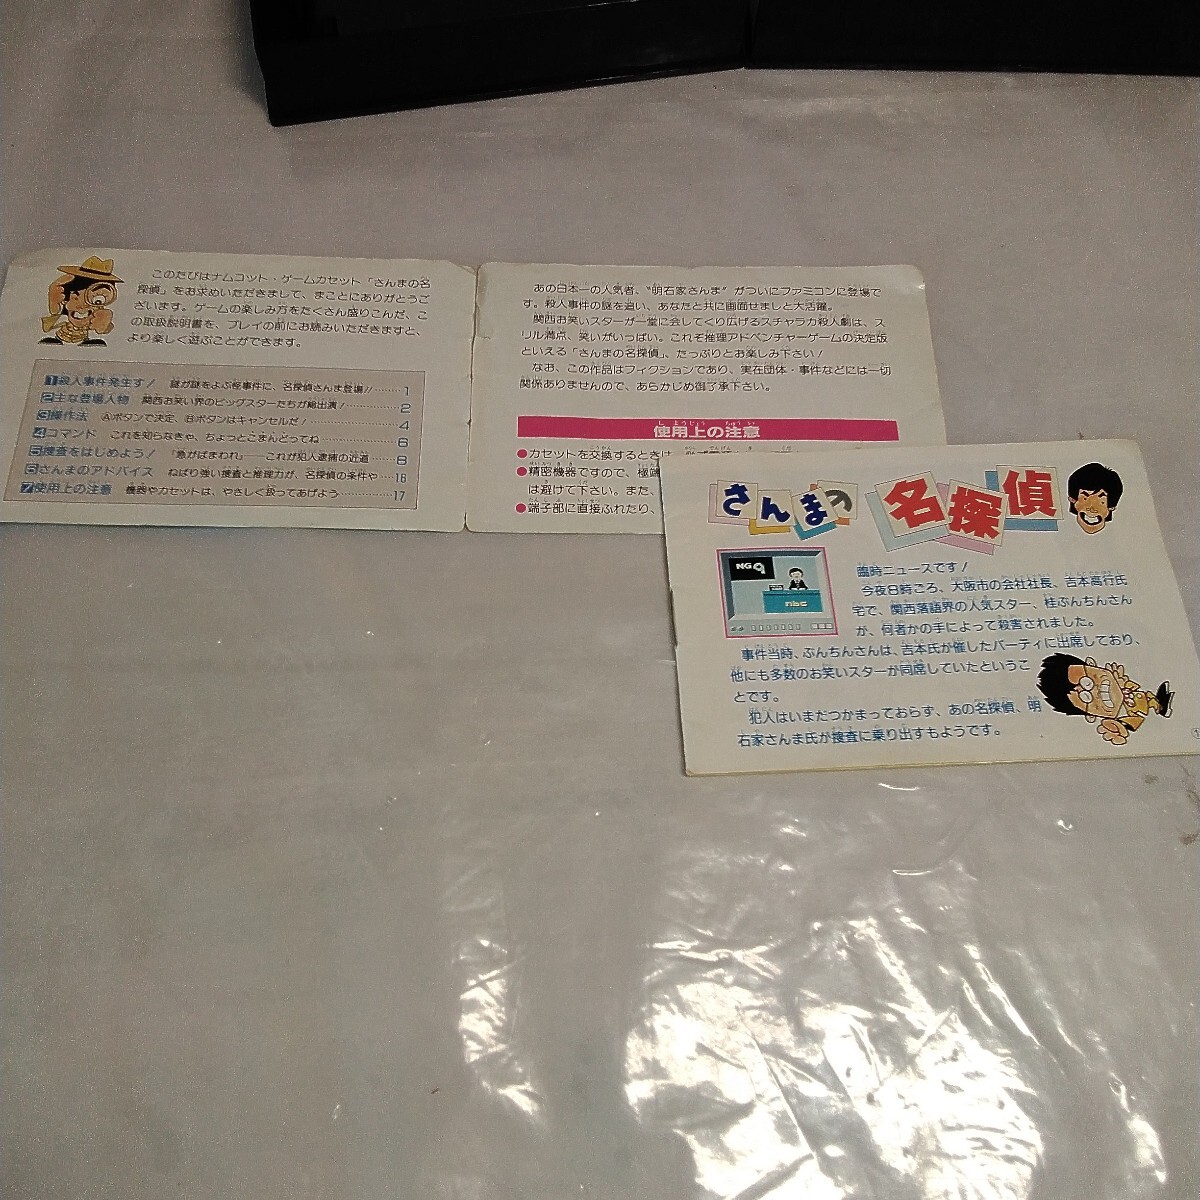 このたびはナムコット・ゲームカセット「さんまの名
探偵」をお求めいただきまして、まことにありがとうご
ざいます。ゲームの楽しみ方をたくさん盛りこんだ、こ
の取扱説明書を、プレイの前にお読みいただきますと、
より楽しく遊ぶことができます。
1 殺人事件発生す! 謎が謎をよぶ怪事件に、名探偵さんま登場!!……… 1
2 主な登場人物 関西お笑い界のビッグスターたちが総出演!……… 2
3 操作法 Ⓐボタンで決定、Ⓑボタンはキャンセルだ!……… 4
4 コマンド これを知らなきゃ、ちょっとこまんどってね……… 6
5 捜査をはじめよう! 「急がばまわれ」──これが犯人逮捕の近道……… 8
6 さんまのアドバイス ねばり強い捜査と推理力が、名探偵の条件や…16
7 使用上の注意 機器やカセットは、やさしく扱ってあげよう……… 17
あの日本一の人気者、“明石家さんま”がついにファミコンに登場で
す。殺人事件の謎を追い、あなたと共に画面せましと大活躍。
関西お笑いスターが一堂に会してくり広げるスチャラカ殺人劇は、ス
リル満点、笑いがいっぱい。これぞ推理アドベンチャーゲームの決定版
といえる「さんまの名探偵」、たっぷりとお楽しみ下さい!
なお、この作品はフィクションであり、実在団体・事件などには一切
関係ありませんので、あらかじめ御了承下さい。
使用上の注意
●カセットを交換するときは、
●精密機器ですので、極端
は避けて下さい。また、
●端子部に直接ふれたり、
さんまの名探偵
NG9
nbc
臨時ニュースです!
今夜8時ごろ、大阪市の会社社長、吉本高行氏
宅で、関西落語界の人気スター、桂ぶんちんさん
が、何者かの手によって殺害されました。
事件当時、ぶんちんさんは、吉本氏が催したパーティに出席しており、
他にも多数のお笑いスターが同席していたというこ
とです。
犯人はいまだつかまっておらず、あの名探偵、明
石家さんま氏が捜査に乗り出すもようです。
①